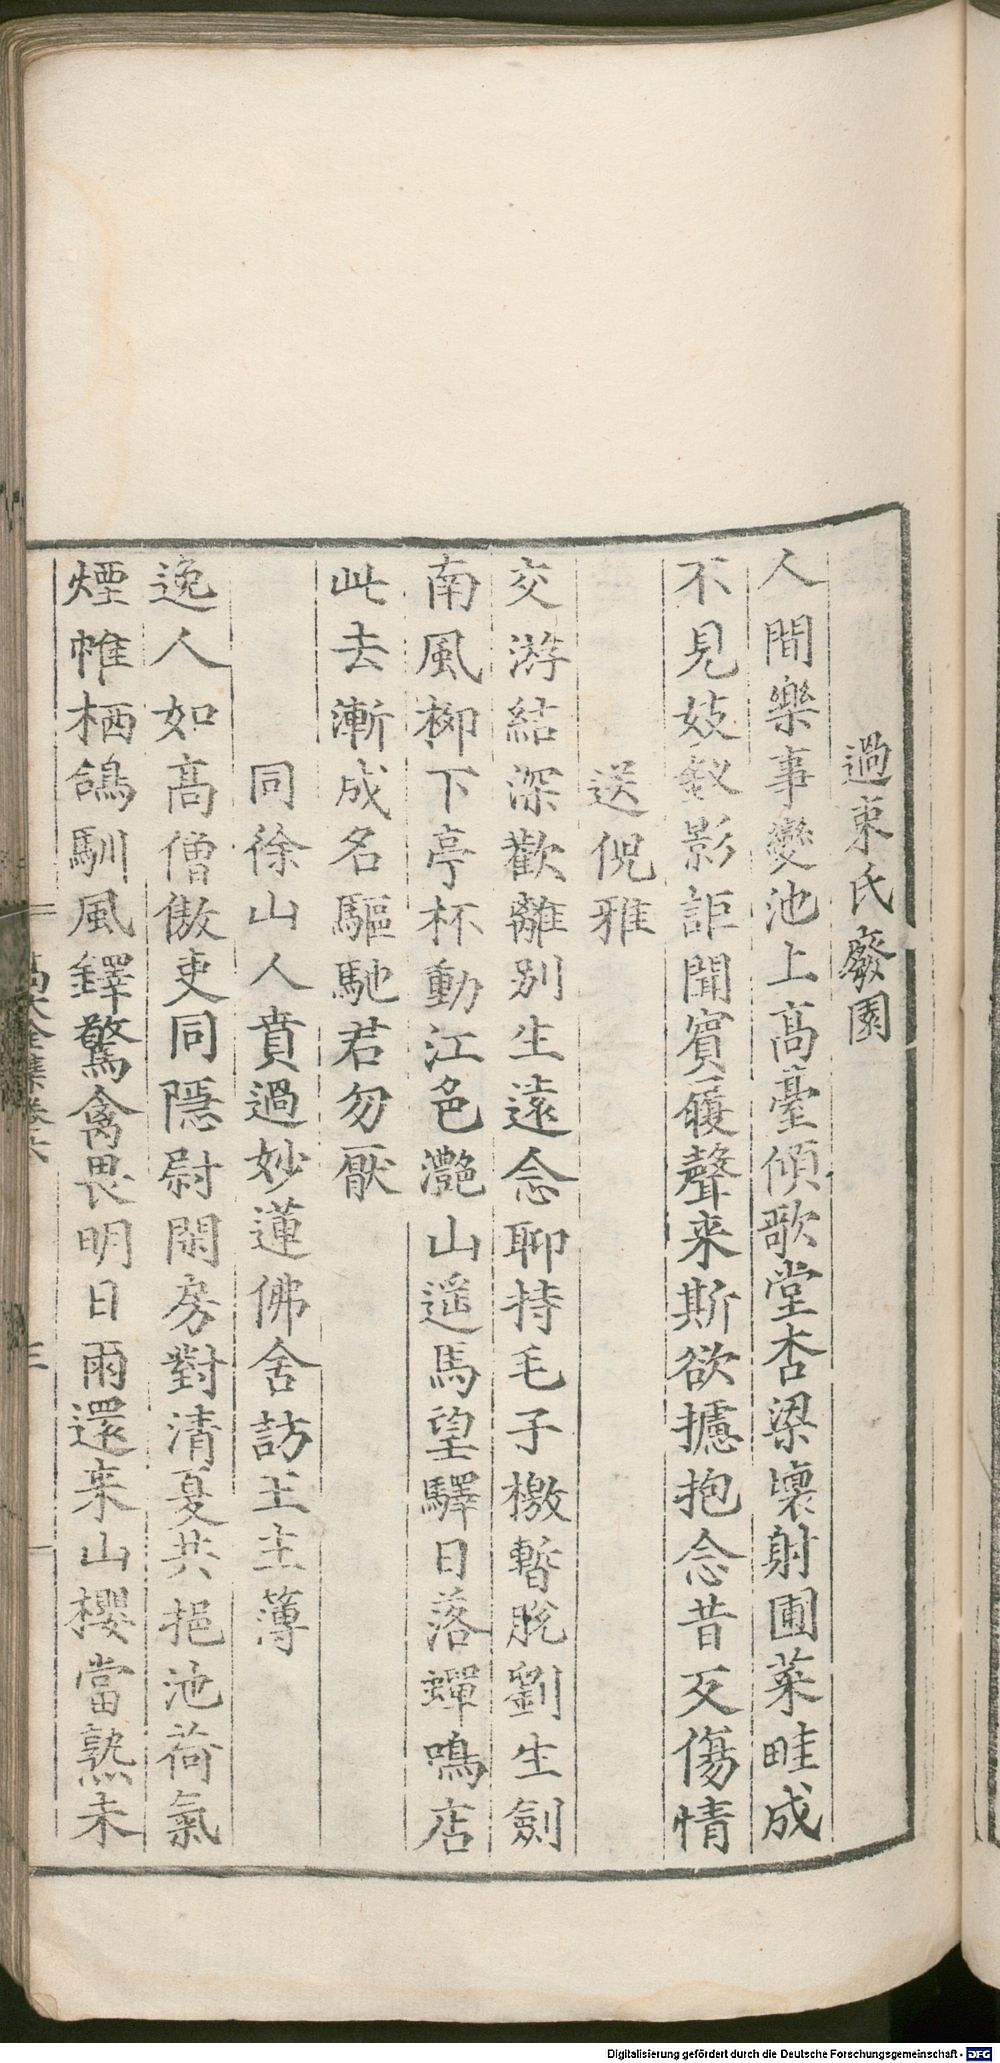 過束氏廢園
人間樂事變池上高臺傾歌堂杏梁壞射圃菜畦成
不見妓釵影詎聞賓履聲来斯欲攄抱念昔叐傷情
送倪雅
交游結深歡離別生遠念聊持毛子檄暫脫劉生劍
南風柳下亭杯動江色灧山遥馬望驛日落蟬鳴店
此去漸成名驅馳君勿厭
同徐山人賁過妙蓮佛舍訪王主簿
逸人如高僧傲吏同隱尉閑房對清夏共挹池荷氣
煙帷栖鴿馴風鐸驚禽畏明日雨還来山櫻當熟未
全集卷六
Digitalisierung gefördert durch die Deutsche Forschungsgemeinschaft - DFG